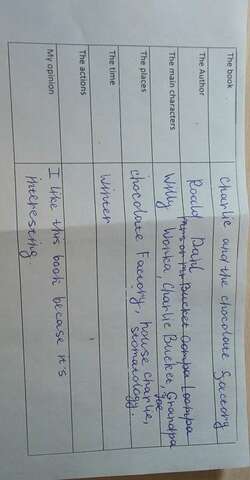 The book charlie and the chocolate factory
The Author Roald Dahl
The main characters Willy Wonka, Charlie Bucket, Grandpa Joe
Oompa Loompa
The places chocolate Factory, house charlie,
stomatology.
The time Winter
The actions
My opinion I like this book becase it's
interesting.